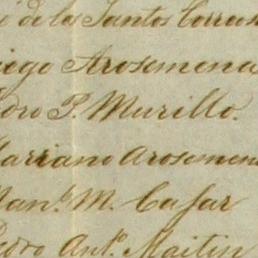 de los Santos Correa
iego Arosemena
dro P. Murillo.
Mariano Arosemena
Man.l M. Cafar
Pedro Ant.o Maitin